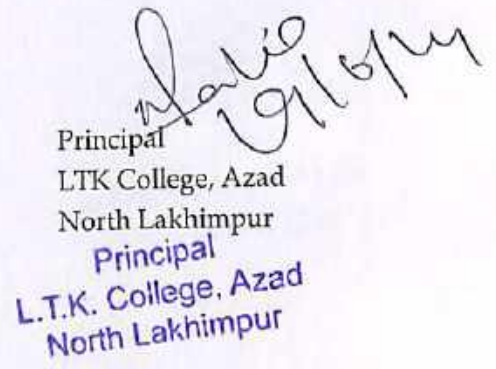 Principal
LTK College, Azad
North Lakhimpur
Principal
L.T.K. College, Azad
North Lakhimpur